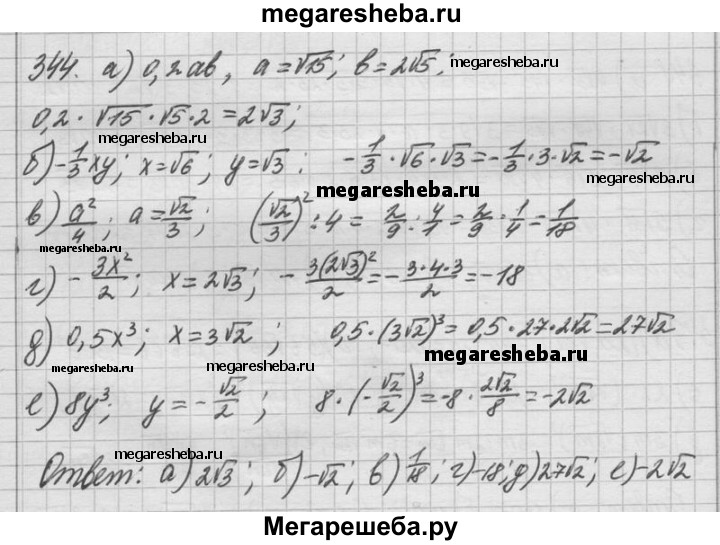 megaresheba.ru
344. а) 0,2ab, a=√15; b=2√5; megaresheba.ru
0,2·√15·√5·2=2√3;
megaresheba.ru
б) -1/3xy; x=√6; y=√3: -1/3·√6·√3=-1/3·3·√2=-√2
megaresheba.ru megaresheba.ru
в) a²/4; a=√2/3; (√2/3)²:4=2/9:4/1=2/9·1/4=1/18
megaresheba.ru
г) -3x²/2; x=2√3; -3(2√3)²/2=-3·4·3/2=-18
д) 0,5x³; x=3√2; 0,5·(3√2)³=0,5·27·2√2=27√2
megaresheba.ru megaresheba.ru megaresheba.ru
е) 8y³; y=-√2/2; 8·(-√2/2)³=-8·2√2/8=-2√2
megaresheba.ru
Ответ: а) 2√3; б) -√2; в) 1/18; г) -18; д) 27√2; е) -2√2
Мегарешеба.ру